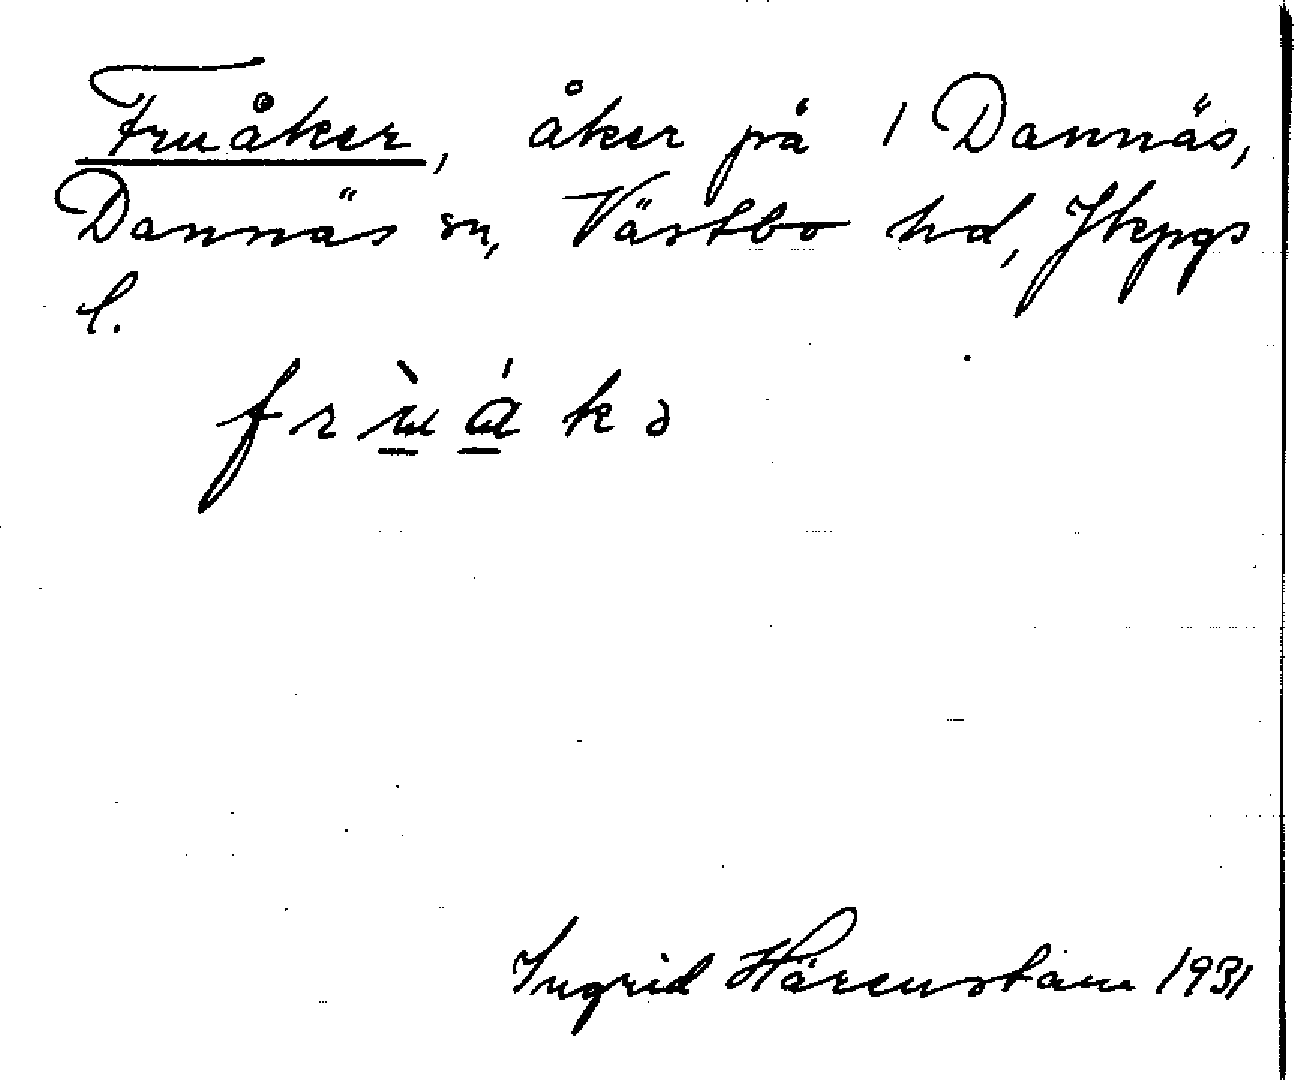 Fruåker, åker på 1 Dannäs,
Dannäs sn, Västbo hd, Jkpgs
l.
frù̠á̠kə
Ingrid Härenstam 1931